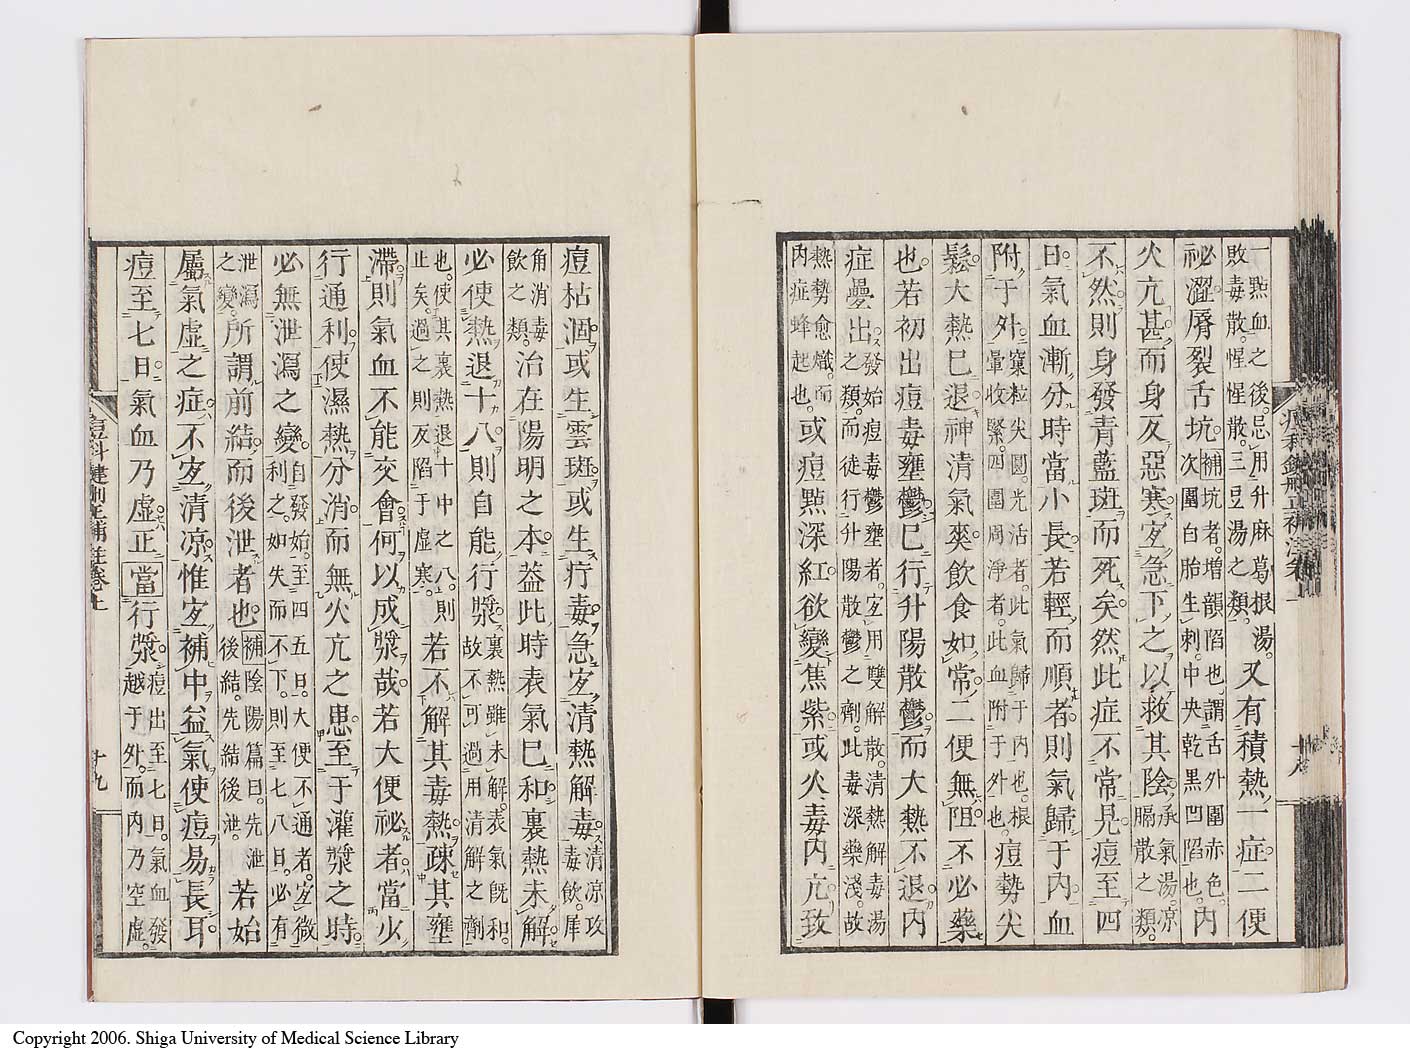 一點血之後。忌用升麻葛根湯。敗毒散。惺惺散。三豆湯之類。又有積熱一症。二便
祕澀脣裂舌坑。補坑者。增韻陷也。謂舌外圍赤色。次圍白胎生刺。中央乾黑凹陷也。内
火亢甚而身反惡寒。宜急下之以救其陰。承氣湯。凉膈散之類。
不然則身發青藍斑而死矣。然此症不常見。痘至四
日。氣血漸分時當小長。若輕而順者。則氣歸于内。血
附于外。窠粒尖圓。光活者。此氣歸于内也。根暈收緊。四圍周淨者。此血附于外也。痘勢尖
鬆。大熱已退。神清氣爽。飲食如常。二便無阻。不必藥
也。若初出痘毒壅鬱。已行升陽散鬱。而大熱不退。内
症疊出。發始痘毒鬱壅者。宜用雙解散。清熱解毒湯之類。而徒行升陽散鬱之劑。此毒深藥淺。故
熱勢愈熾。而内症蜂起也。或痘點深紅。欲變焦紫。或火毒内亢。致
痘枯涸。或生雲斑。或生疔毒。急宜清熱解毒。清凉攻毒飲。犀
角消毒飲之類。治在陽明之本。葢此時表氣已和。裏熱未解。
必使熱退十八。則自能行漿。裏熱雖未解。表氣既和。故不可過用清解之劑
也。使其裏熱退十中之八。則止矣。過之則反陷于虛寒。若不解其毒熱。疎其壅
滯。則氣血不能交會。何以成漿哉。若大便祕者。當少
行通利。使濕熱分消。而無火亢之患。至于灌漿之時。
必無泄瀉之變。自發始。至四五日。大便不通者。宜微利之。如失而不下。則至七八日。必有
泄瀉之變。所謂前結而後泄者也。補陰陽篇曰。先泄後結。先結後泄。若始
屬氣虛之症。不宜清凉。惟宜補中益氣。使痘易長耳。
痘至七日。氣血乃虛。正當行漿。痘出至七日。氣血發越于外。而内乃空虛。
痘科鍵刪正補註卷上 十九
Copyright 2006. Shiga University of Medical Science Library